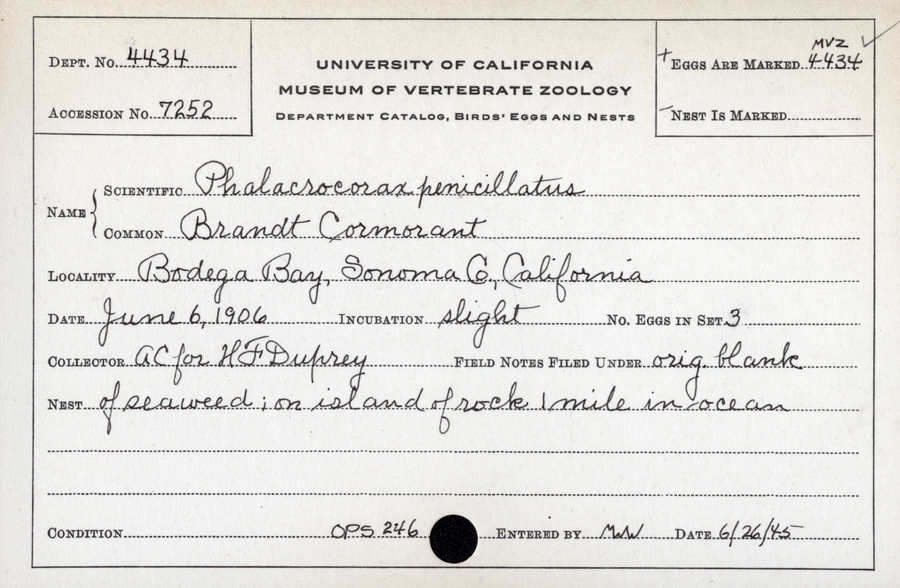 DEPT. No. 4434
ACCESSION No. 7252
UNIVERSITY OF CALIFORNIA
MUSEUM OF VERTEBRATE ZOOLOGY
DEPARTMENT CATALOG, BIRDS' EGGS AND NESTS
MVZ ✓
+ EGGS ARE MARKED 4434
- NEST IS MARKED
NAME { SCIENTIFIC Phalacrocorax penicillatus
COMMON Brandt Cormorant
LOCALITY Bodega Bay, Sonoma Co., California
DATE June 6, 1906 INCUBATION slight No. EGGS IN SET 3
COLLECTOR AC for HF Duprey FIELD NOTES FILED UNDER orig. blank
NEST of seaweed; on island of rock 1 mile in ocean
CONDITION OPS 246 ENTERED BY MW DATE 6/26/45